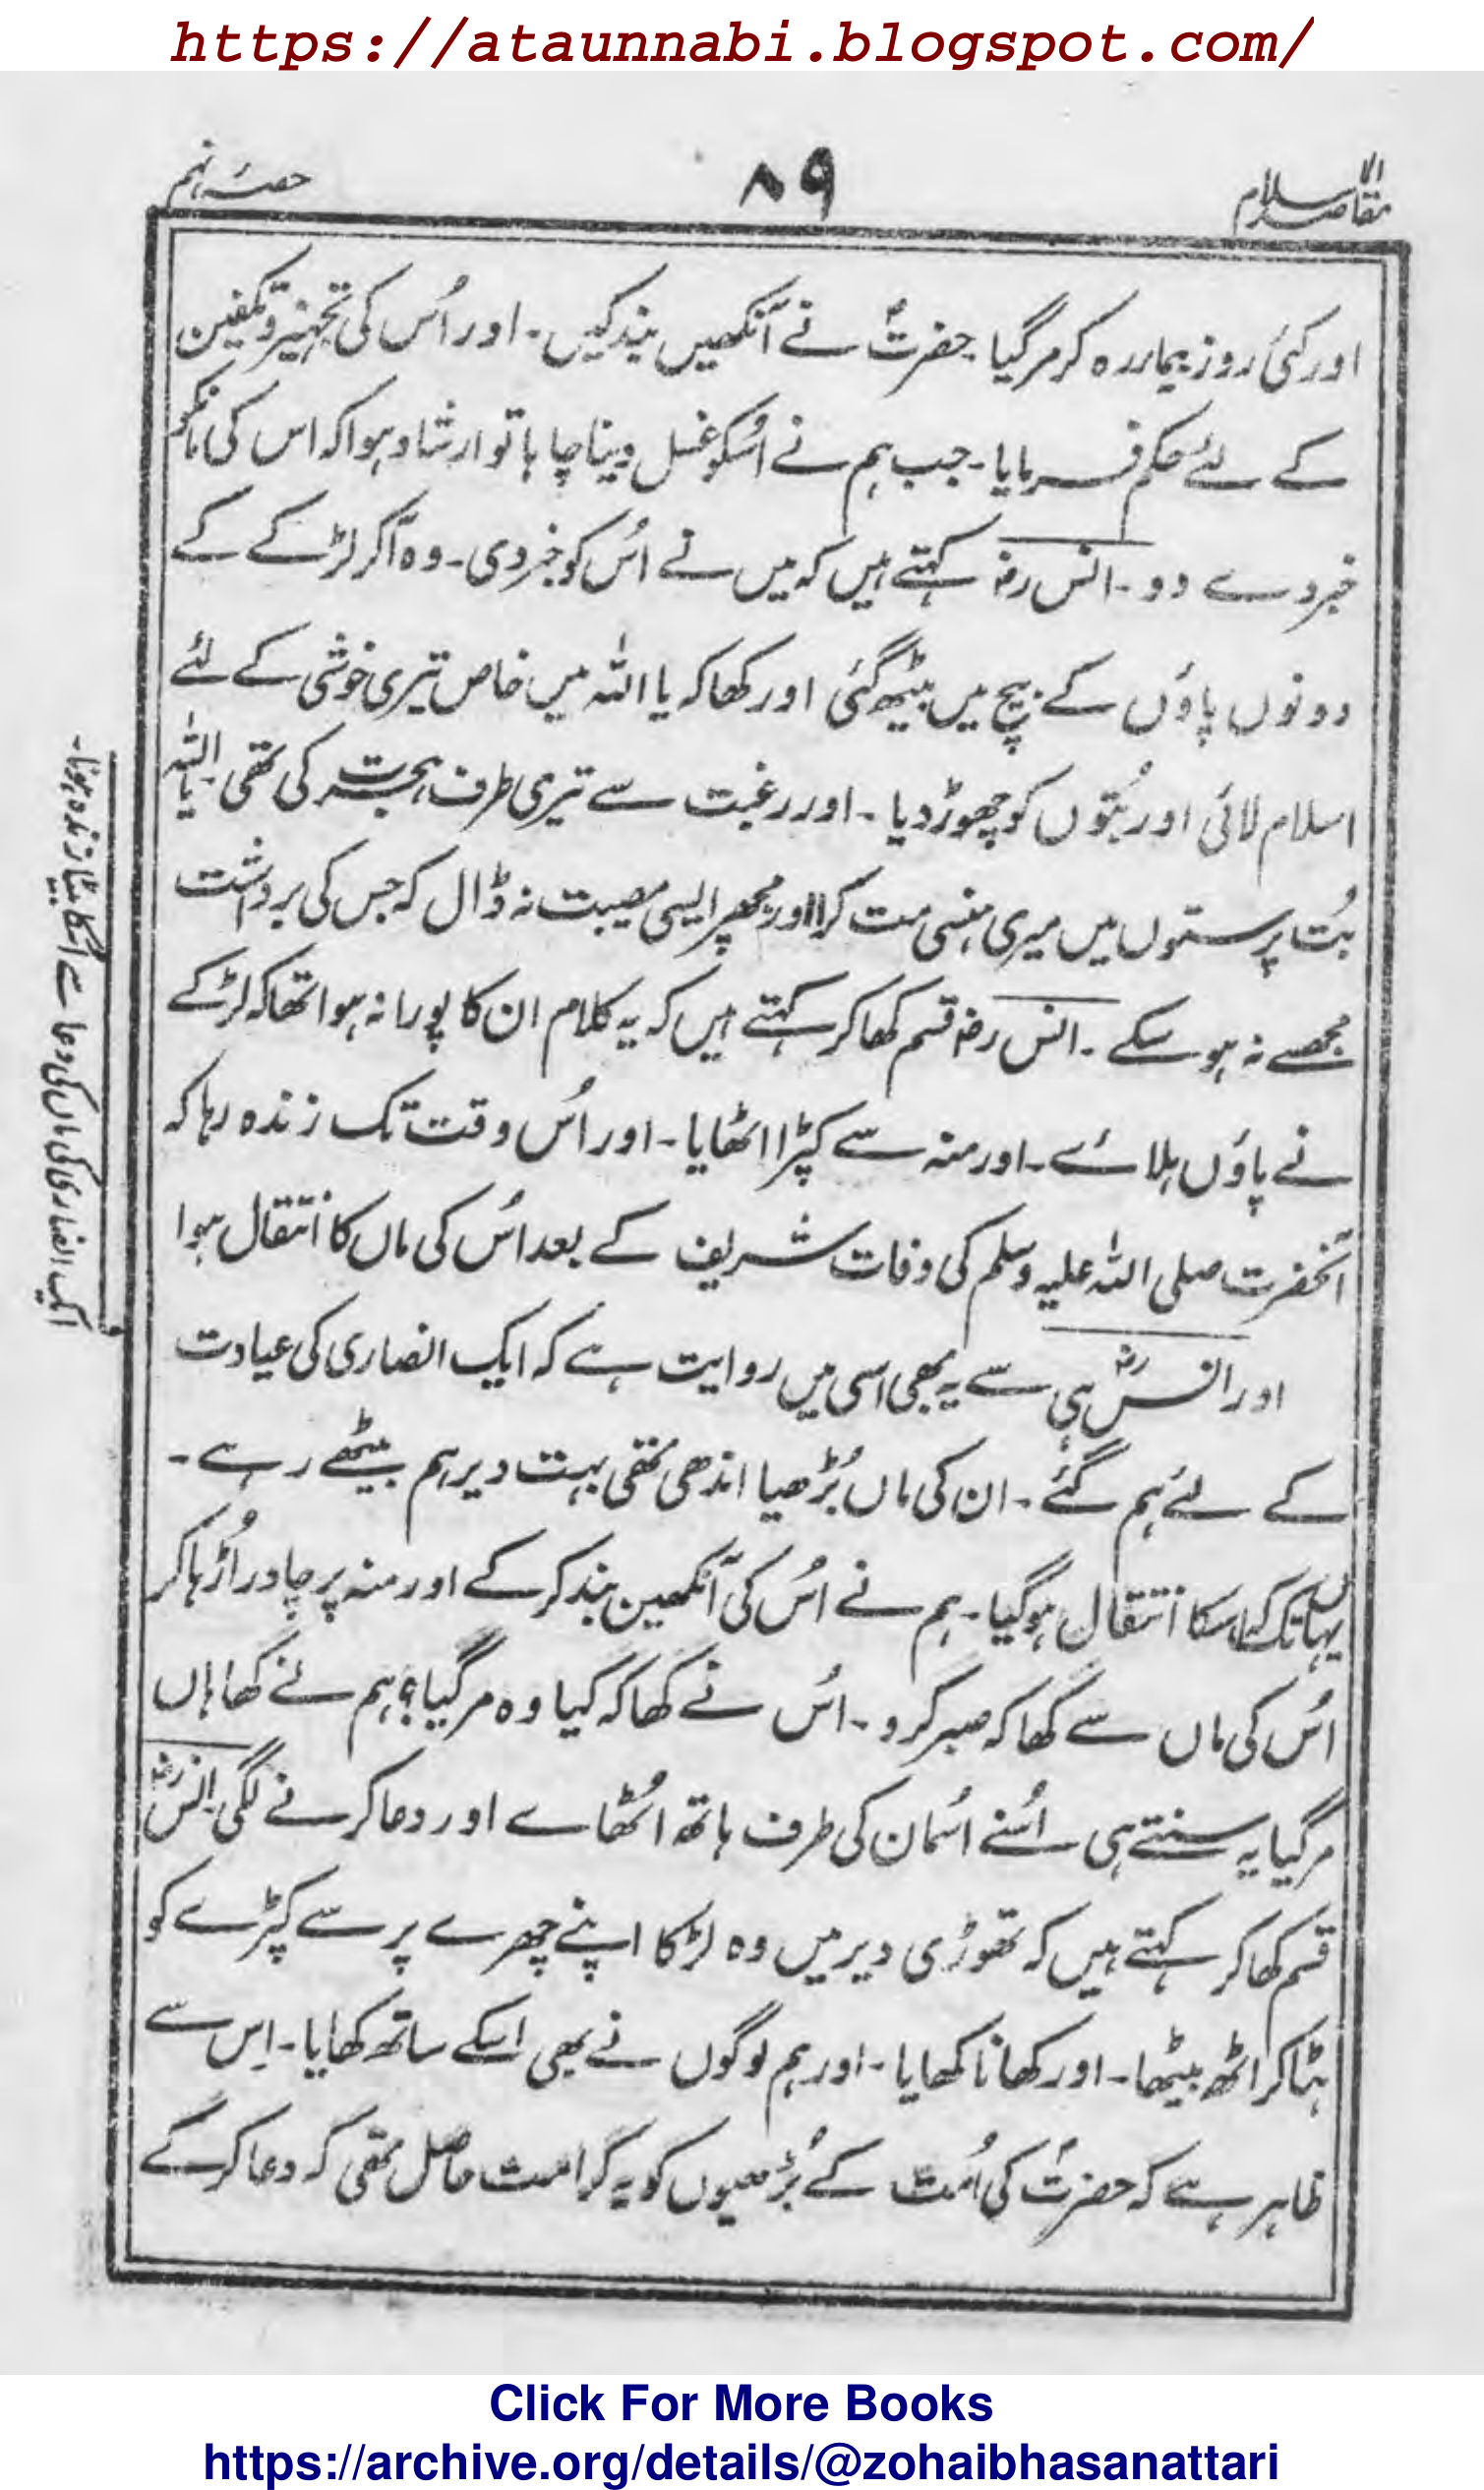 https://ataunnabi.blogspot.com/
مقاصد الاسلام
۸۹
حصۂ نہم
اور کئی روز بیمار رہ کر مر گیا حضرتؐ نے آنکھیں بند کیں۔ اور اُس کی تجہیز و تکفین
کے لئے حکم فرمایا۔ جب ہم نے اسُکو غسل دینا چاہا تو ارشاد ہوا کہ اس کی مانکو
خبر دے دو۔ انس رضؓ کہتے ہیں کہ میں نے اسُ کو خبر دی۔ وہ آکر لڑکے کے
دونوں پاؤں کے بیچ میں بیٹھ گئی اور کھا کہ یا اللہ میں خاص تیری خوشی کے لئے
اسلام لائی اور بُتوں کو چھوڑ دیا۔ اور رغبت سے تیری طرف ہجرت کی تھی۔ یا اللہ
بُت پرستوں میں میری ہنسی مت کرا اور مجھپر ایسی مصیبت نہ ڈال کہ جس کی برداشت
مجھسے نہ ہو سکے۔ انس رضؓ قسم کھا کر کہتے ہیں کہ یہ کلام ان کا پورا نہ ہوا تھا کہ لڑکے
نے پاؤں ہلائے۔ اور منہ سے کپڑا اٹھایا۔ اور اُس وقت تک زندہ رہا کہ
آنحضرت صلی اللہ علیہ وسلم کی وفات شریف کے بعد اسُ کی ماں کا انتقال ہوا
اور انسؓ ہی سے یہ بھی اسی میں روایت ہے کہ ایک انصاری کی عیادت
کے لئے ہم گئے۔ ان کی ماں بُڑھیا اندھی تھی بہت دیر ہم بیٹھے رہے۔
یہاں تک کہ اسکا انتقال ہو گیا۔ ہم نے اسُ کی آنکھیں بند کر کے اور منہ پر چادر اُڑہا کر
اسُ کی ماں سے کھا کہ صبر کرو۔ اسُ نے کھا کہ کیا وہ مر گیا؟ ہم نے کھا ہاں
مر گیا یہ سنتے ہی اسُنے اسٓمان کی طرف ہاتھ اٹھاے اور دعا کرنے لگی۔ انسؓ
قسم کھا کر کہتے ہیں کہ تھوڑی دیر میں وہ لڑکا اپنے چھرے پر سے کپڑے کو
ہٹا کر اٹھ بیٹھا۔ اور کھانا کھایا۔ اور ہم لوگوں نے بھی اسکے ساتھ کھایا۔ اِس سے
ظاہر ہے کہ حضرتؐ کی اُمت کے بُڑھیوں کو یہ کرامت حاصل تھی کہ دعا کر کے
ایک انصاری کی ماں کی دعا سے اسکا بیٹا زندہ ہونا۔
Click For More Books
https://archive.org/details/@zohaibhasanattari